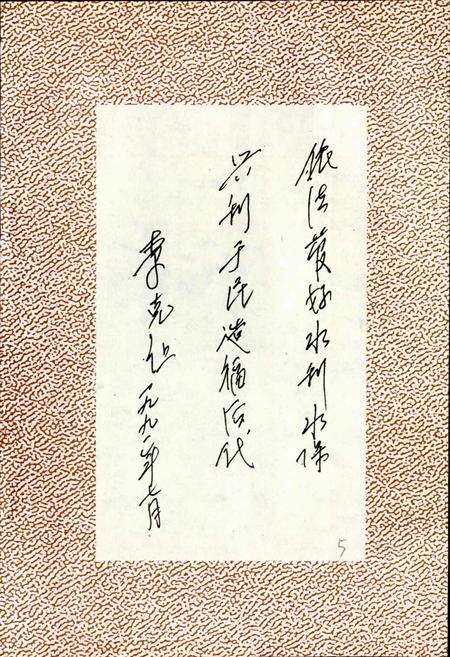 依法管好水利水保
兴利于民造福后代
李克 一九九一年七月
5